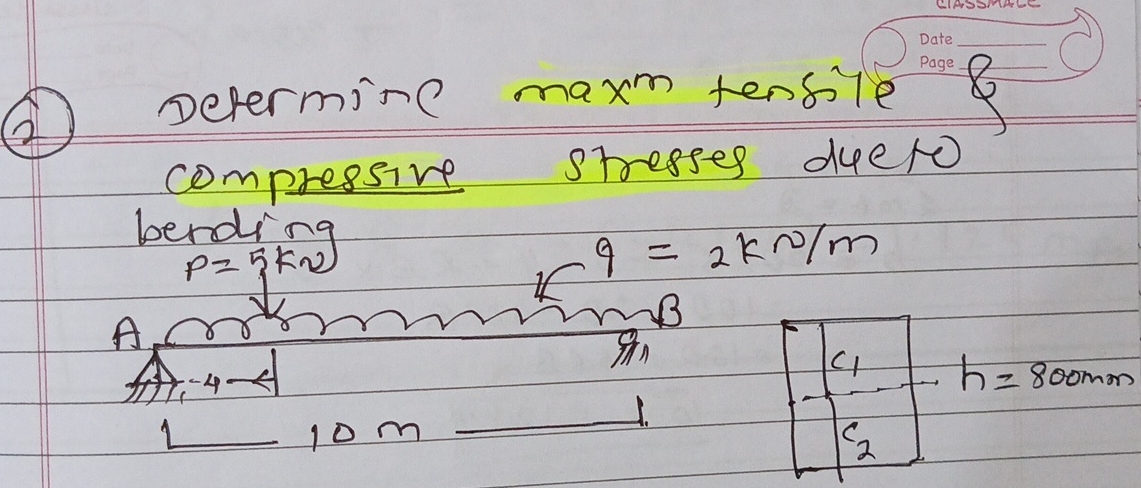 CLASSMATE
Date
Page
2
Determine maxm tensile &
compressive stresses due to
bending
P = 5kN
q = 2kN/m
A
B
4
10 m
C1
C2
h = 800mm